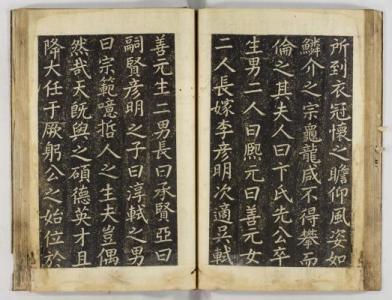 所到衣冠懷之瞻仰風姿如
鱗介之宗龜龍咸不得攀而
倫之其夫人曰卞氏先公卒
生男二人曰熙元曰善元女
二人長嫁李彦明次適吳軾
善元生二男長曰承賢亞曰
嗣賢彦明之子曰淳軾之男
曰宗範噫哲人之生夫豈偶
然哉天既與之碩德英才且
降大任于厥躬公之始位於